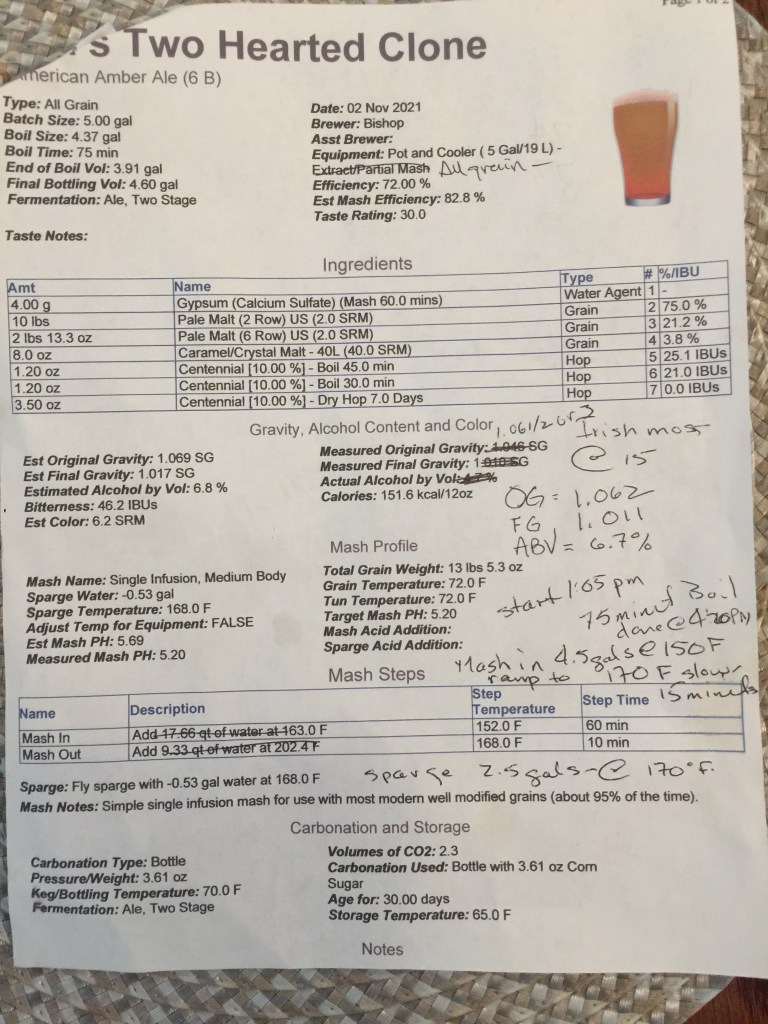 Page 1 of 2
's Two Hearted Clone
American Amber Ale (6 B)
Type: All Grain
Batch Size: 5.00 gal
Boil Size: 4.37 gal
Boil Time: 75 min
End of Boil Vol: 3.91 gal
Final Bottling Vol: 4.60 gal
Fermentation: Ale, Two Stage
Date: 02 Nov 2021
Brewer: Bishop
Asst Brewer:
Equipment: Pot and Cooler ( 5 Gal/19 L) -
Extract/Partial Mash All grain -
Efficiency: 72.00 %
Est Mash Efficiency: 82.8 %
Taste Rating: 30.0
Taste Notes:
Ingredients
Amt Name Type # %/IBU
4.00 g Gypsum (Calcium Sulfate) (Mash 60.0 mins) Water Agent 1 -
10 lbs Pale Malt (2 Row) US (2.0 SRM) Grain 2 75.0 %
2 lbs 13.3 oz Pale Malt (6 Row) US (2.0 SRM) Grain 3 21.2 %
8.0 oz Caramel/Crystal Malt - 40L (40.0 SRM) Grain 4 3.8 %
1.20 oz Centennial [10.00 %] - Boil 45.0 min Hop 5 25.1 IBUs
1.20 oz Centennial [10.00 %] - Boil 30.0 min Hop 6 21.0 IBUs
3.50 oz Centennial [10.00 %] - Dry Hop 7.0 Days Hop 7 0.0 IBUs
Gravity, Alcohol Content and Color
1.061/2 or 3
Irish moss
@ 15
Est Original Gravity: 1.069 SG
Est Final Gravity: 1.017 SG
Estimated Alcohol by Vol: 6.8 %
Bitterness: 46.2 IBUs
Est Color: 6.2 SRM
Measured Original Gravity: 1.046 SG
Measured Final Gravity: 1.010 SG
Actual Alcohol by Vol: 4.7 %
Calories: 151.6 kcal/12oz
OG = 1.062
FG 1.011
ABV = 6.7%
Mash Profile
Mash Name: Single Infusion, Medium Body
Sparge Water: -0.53 gal
Sparge Temperature: 168.0 F
Adjust Temp for Equipment: FALSE
Est Mash PH: 5.69
Measured Mash PH: 5.20
Total Grain Weight: 13 lbs 5.3 oz
Grain Temperature: 72.0 F
Tun Temperature: 72.0 F
Target Mash PH: 5.20
Mash Acid Addition:
Sparge Acid Addition:
start 1:05 pm
75 minut Boil
done @ 4:20PM
Mash in 4.5gals @ 150F
ramp to 170 F slowr
15 minuts
Mash Steps
Name Description Step Temperature Step Time
Mash In Add 17.66 qt of water at 163.0 F 152.0 F 60 min
Mash Out Add 9.33 qt of water at 202.4 F 168.0 F 10 min
Sparge: Fly sparge with -0.53 gal water at 168.0 F
sparge 2.5 gals - @ 170°F.
Mash Notes: Simple single infusion mash for use with most modern well modified grains (about 95% of the time).
Carbonation and Storage
Carbonation Type: Bottle
Pressure/Weight: 3.61 oz
Keg/Bottling Temperature: 70.0 F
Fermentation: Ale, Two Stage
Volumes of CO2: 2.3
Carbonation Used: Bottle with 3.61 oz Corn
Sugar
Age for: 30.00 days
Storage Temperature: 65.0 F
Notes